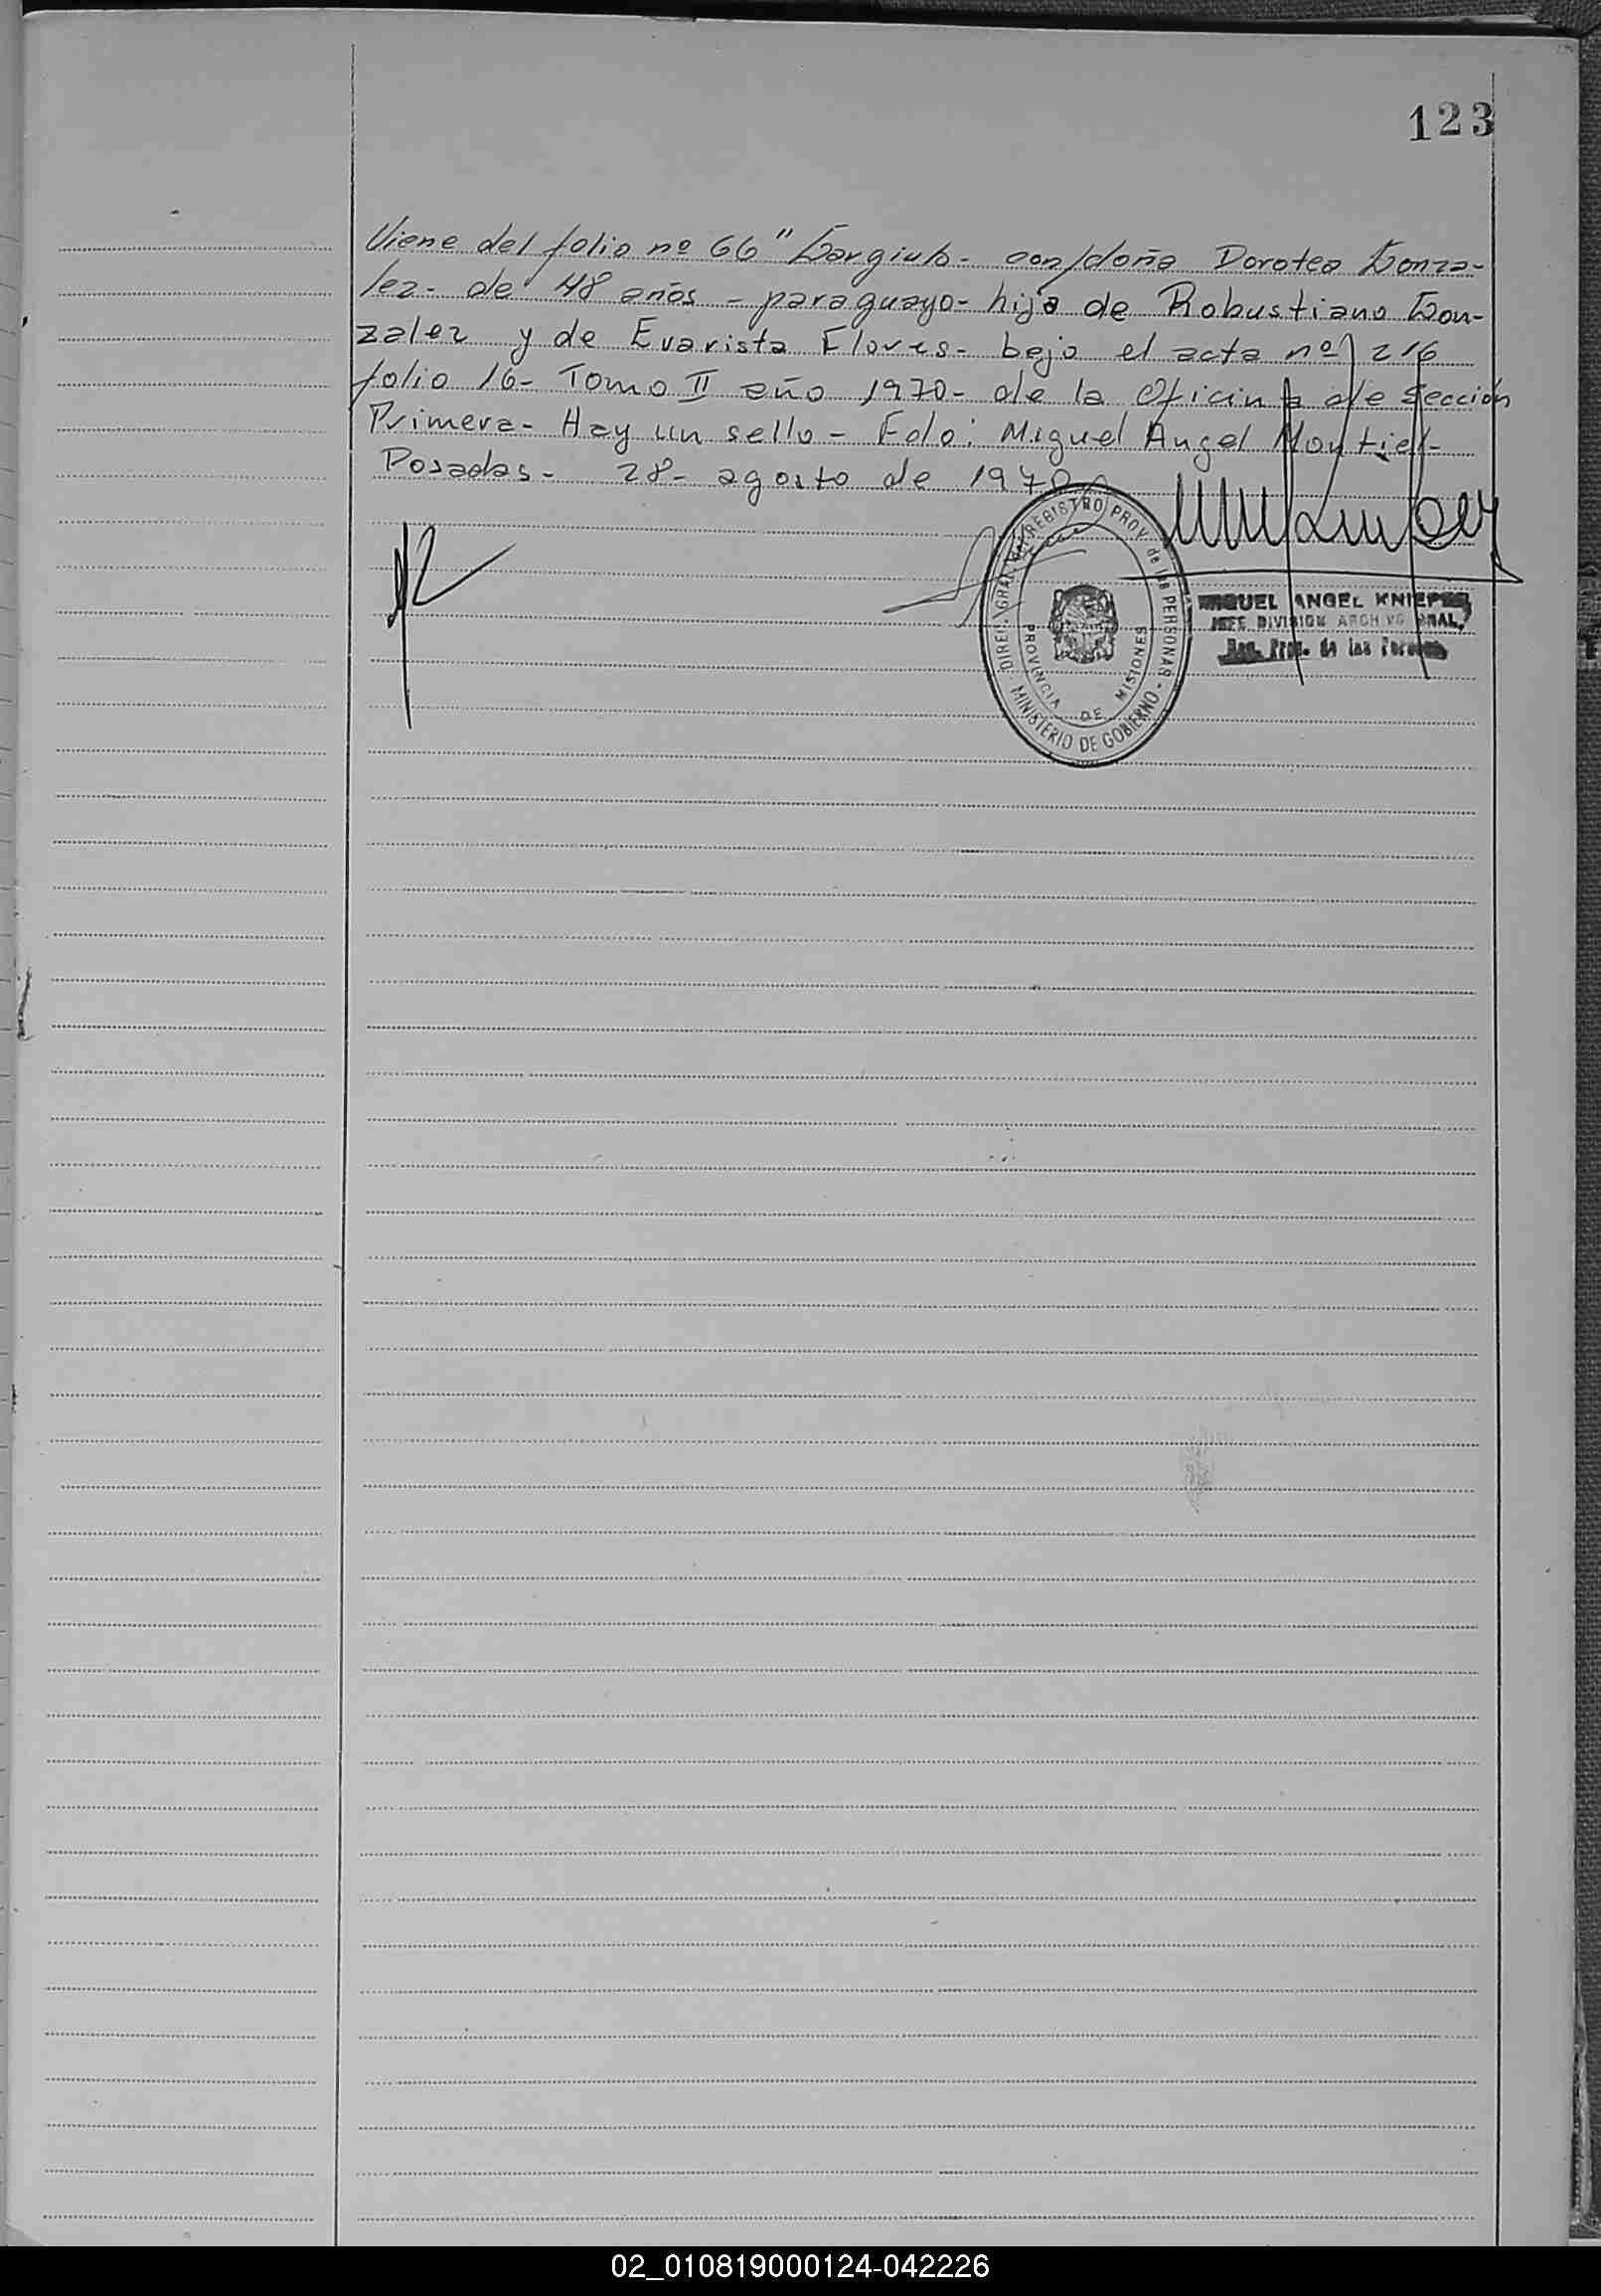 123
Viene del folio nº 66 " Gargiulo - con/doña Dorotea Gonza-
lez - de 48 años - paraguayo - hija de Robustiano Gon-
zalez y de Evarista Flores - bajo el acta nº 216
folio 16 - Tomo II año 1970 - de la Oficina de Sección
Primera - Hay un sello - Fdo: Miguel Angel Montiel -
Posadas - 28 - agosto de 1970
DIREC. GRAL. DEL REGISTRO PROV. de las PERSONAS - MINISTERIO DE GOBIERNO -
PROVINCIA DE MISIONES
MIGUEL ANGEL KNIEPER
JEFE DIVISION ARCHIVO GRAL.
Reg. Prov. de las Personas
02_010819000124-042226